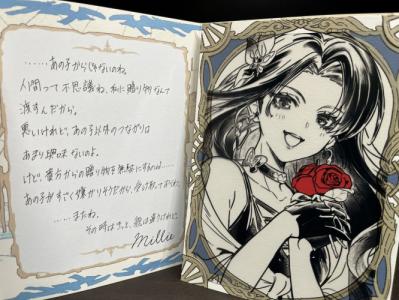 ……あの子からじゃないのね。
人間って不思議ね、私に贈り物なんて
渡すんだから。
悪いけれど、あの子以外のつながりは
あまり興味ないのよ。
けど、貴方からの贈り物を無駄にするのは……
あの子がすごく嫌がりそうだから、受け取っておくわ。
……またね。
その時はきっと、姿は違うけれど。
Millie